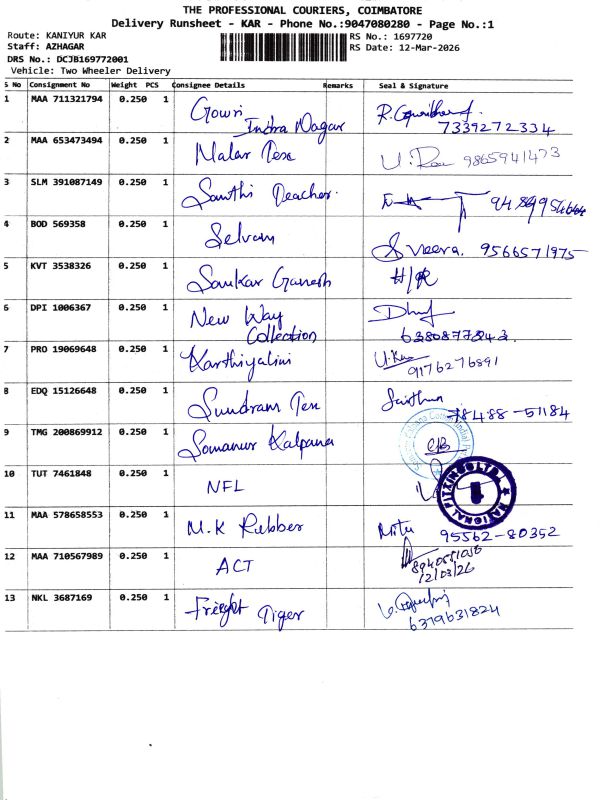 THE PROFESSIONAL COURIERS, COIMBATORE
Delivery Runsheet - KAR - Phone No.:9047080280 - Page No.:1
Route: KANIYUR KAR
RS No.: 1697720
Staff: AZHAGAR
RS Date: 12-Mar-2026
DRS No.: DCJB169772001
Vehicle: Two Wheeler Delivery
S No Consignment No Weight PCS Consignee Details Remarks Seal & Signature
1 MAA 711321794 0.250 1 Gowri
Indra Nagar
7339272334
2 MAA 653473494 0.250 1 Malar Tex 9865941473
3 SLM 391087149 0.250 1 Santhi Teacher.
4 BOD 569358 0.250 1 Selvam
Veera. 9566571975
5 KVT 3538326 0.250 1 Sankar Ganesh H/R
6 DPI 1006367 0.250 1 New Way
Collection
6380877843.
7 PRO 19069648 0.250 1 Karthiyalini
9176276891
8 EDQ 15126648 0.250 1 Sundram Tex
78488-51184
9 TMG 200869912 0.250 1 Somanur Kalpana
10 TUT 7461848 0.250 1 NFL
NATIONAL FITXINGS LTD
11 MAA 578658553 0.250 1 M.K Rubber
95562-80352
12 MAA 710567989 0.250 1 ACT
12/03/26
13 NKL 3687169 0.250 1 Frieght Tiger
6379631824